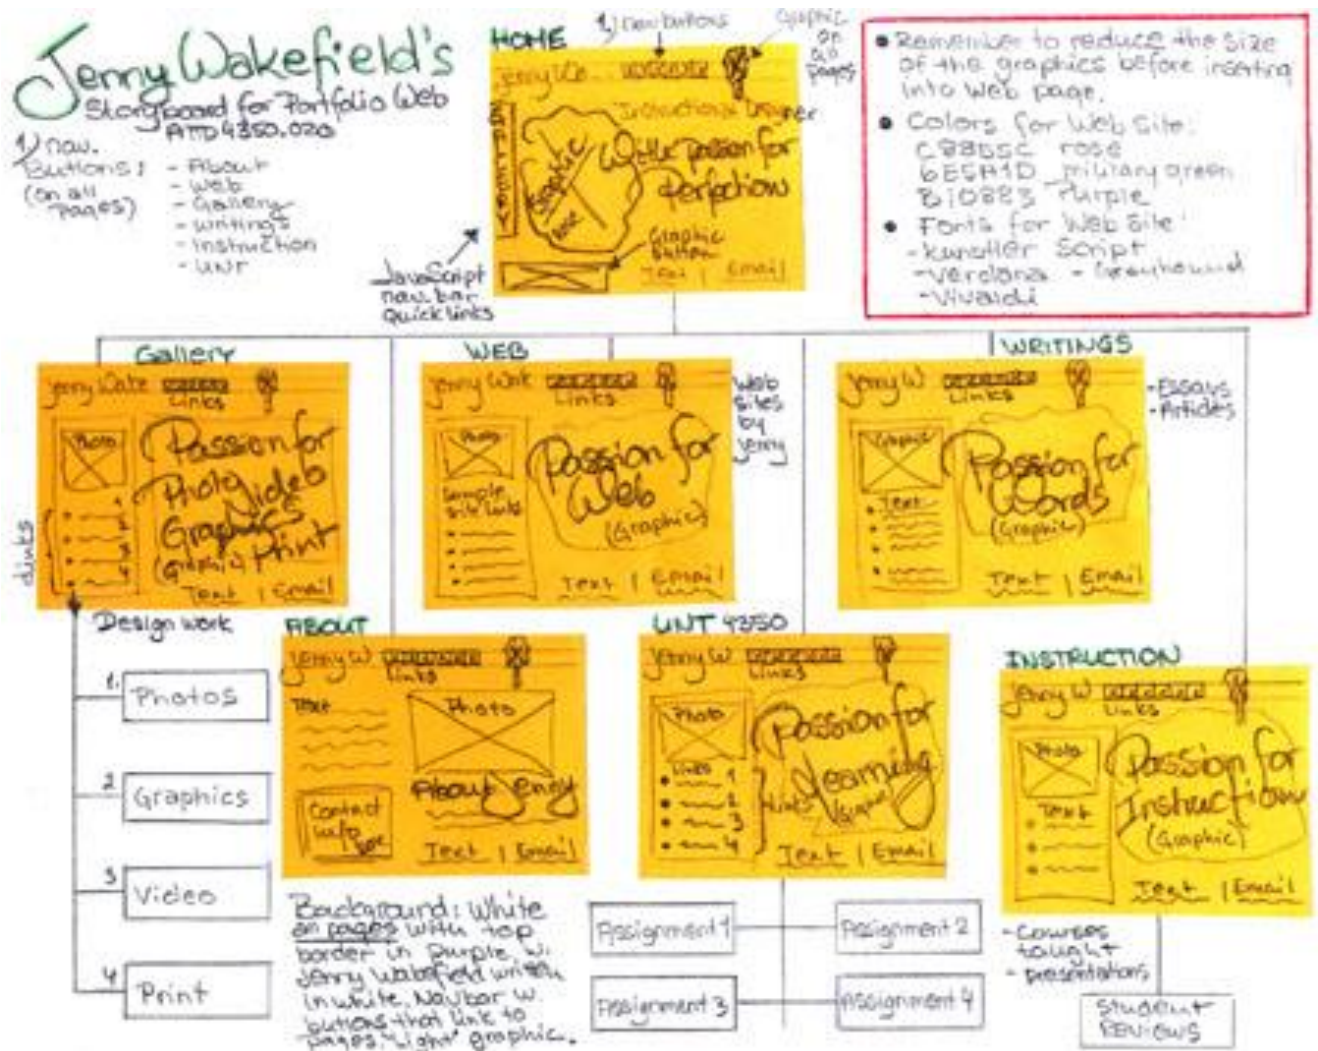 Jenny Wakefield's
Storyboard for Portfolio Web
ATTD 4350.020
1) nav.
Buttons:
(on all
pages)
- About
- Web
- Gallery
- Writings
- Instruction
- UNT
HOME
1) nav buttons
Graphic
on
all
pages
Jenny Wa
Instructional Designer
With passion for
Perfection
Graphic
Graphic
button
Text | Email
JavaScript
nav. bar
quick links
• Remember to reduce the size
of the graphics before inserting
into Web page.
• Colors for Web Site:
rose
military green
Purple
• Fonts for Web Site:
- Kunstler Script
- Verdana - Greyhound
- Vivaldi
Gallery
Jenny Wake
Links
Photo
Passion for
Photo Video
Graphics
(Graphic) Print
Text | Email
Links
WEB
Jenny Wak
Links
Photo
Sample
site links
Passion for
Web
(Graphic)
Text | Email
Web
sites
by
Jenny
WRITINGS
Jenny W
Links
Graphic
Text
Passion for
Words
(Graphic)
Text | Email
- Essays
- Articles
Design work
1. Photos
2 Graphics
3 Video
4 Print
ABOUT
Jenny W
Links
Text
Photo
About Jenny
Contact
info
Text | Email
UNT 4350
Jenny W
Links
Photo
Links
1
2
3
4
Links
Passion for
learning
(Graphic)
Text | Email
INSTRUCTION
Jenny W
Links
Photo
Text
Passion for
Instruction
(Graphic)
Text | Email
Background: White
on pages with top
border in purple w.
Jenny Wakefield written
in white. Navbar w.
buttons that link to
pages. "Light" graphic.
Assignment 1
Assignment 2
Assignment 3
Assignment 4
- Courses
taught
- presentations
Student
REVIEWS